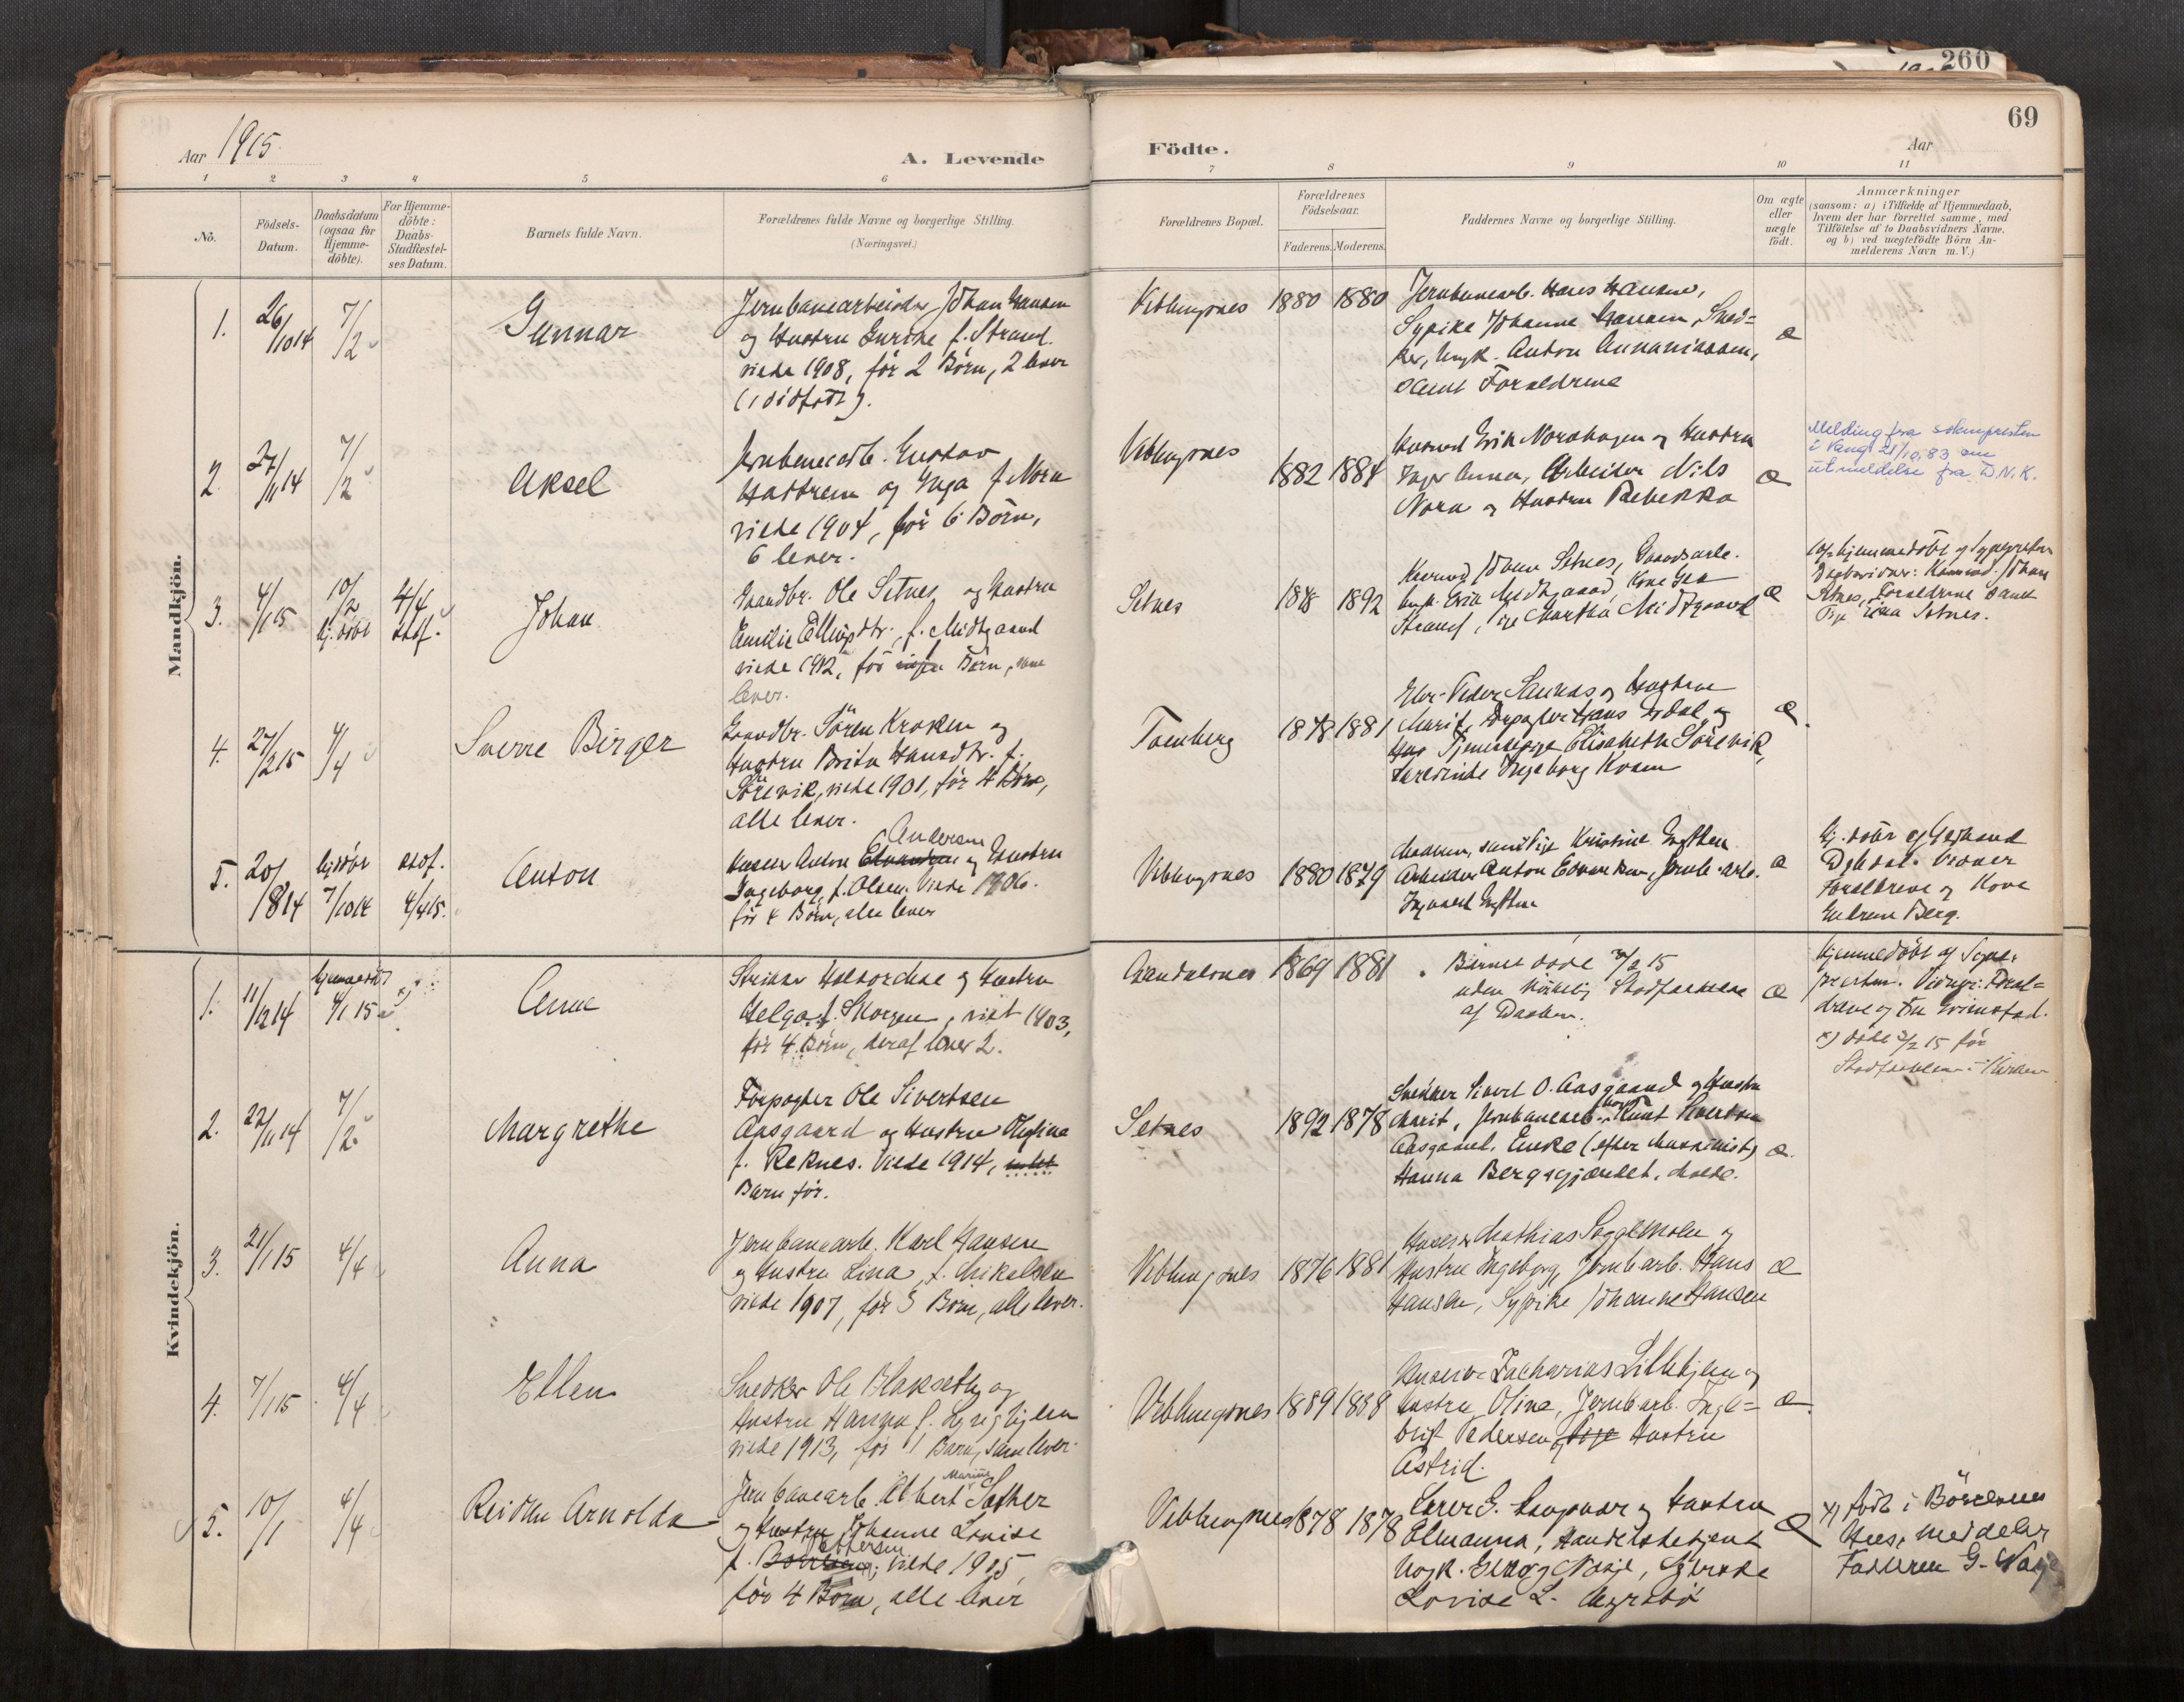 260
69
Aar 1915.
A. Levende
Födte.
Aar
1 2 3 4 5 6 7 8 9 10 11
No.
Födsels-
Datum.
Daabsdatum
(ogsaa for
Hjemme-
döbte).
For Hjemme-
döbte:
Daabs-
Stadfæstel-
ses Datum.
Barnets fulde Navn.
Forældrenes fulde Navne og borgerlige Stilling.
(Næringsvei.)
Forældrenes Bopæl.
Forældrenes
Födselsaar.
Faderens. Moderens.
Faddernes Navne og borgerlige Stilling.
Om ægte
eller
uægte
födt.
Anmærkninger
(saasom: a) i Tilfælde af Hjemmedaab,
hvem der har forrettet samme, med
Tilföielse af to Daabsvidners Navne,
og b) ved uægtefödte Börn An-
melderens Navn m. V.)
Mandkjön.
1.
26/10 14
7/2
Gunnar
Jernbanearbeider Johan Hansen
og Hustru f. Strand.
viede 1908, för 2 Börn, 2 lever
Veblungsnes
1880 1880
Jernbanearb. Hans Hansen,
Sypike Johanne Hansen, Sned=
ker, Ungk. Anton
samt Forældrene
æ
2
27/11 14
7/2
Aksel
Jernbanearb. Gustav
og Inga f. Nora
viede 1904, för 6 Börn,
6 lever.
Veblungsnes
1882 1884
Erik Nordhagen og Hustru
Arbeider Nils
Nora og Hustru Rebekka
æ
Melding fra soknepresten
i Vang 21/10.83 om
utmeldelse fra D.N.K.
3.
4/1 15
10/2
hj.döbt
4/4
stdf.
Johan
Gaardbr. Ole Setnes og Hustru
Emilie f. Midtgaard
viede 1912, för Börn, som
lever.
Setnes
1878 1892
Johan Setnes, Gaardsarb.
Ungk. Erik Midtgaard, Kone
Strand, Pige Martha Midtgaard
æ
hjemmedöbt af Sognepresten
Daabsvidner: Johan
Setnes, Forældrene samt
Pige Setnes.
4.
27/2 15
4/4
Sverre Birger
Gaardbr. Sören Kroken og
Hustru Brita Hansdtr. f.
Sörevik, viede 1901, för 4 Börn,
alle lever.
Tomberg
1878 1881
Gbr. Peder og Hustru
Marit, Forpagter Hans og
Tjenestepige Elisabeth Sörevik,
Lærerinde Ingeborg Kvam
æ.
5.
20/1814
hjdöbt
7/10 14
stdf.
4/4 15.
Anton
Andersen
Anton og Hustru
Ingeborg, f. Olsen. Viede 1906.
för 4 Börn, alle lever
Veblungsnes
1880 1879
samt Pige Kristine
Arbeider Anton Jernb. arb.
Ingvald
æ
hj. döbt af Gjertrud
Vidner
Forældrene og Kone
Berg.
Kvindekjön.
1.
11/12 14
hjemmedöbt
4/1 15
x)
Anna
og Hustru
Helga f. Skorgen, viet 1903,
för 4 Börn, deraf lever 2.
Aandalsnes
1869 1881
Barnet döde 3/2 15
uden kirkelig Stadfæstelse
af Daaben.
æ
Hjemmedöbt af Sogne-
presten. Vidner: Foræl=
drene og Fru Grimstad.
x) döde 3/2 15 för
Stadfæstelsen i Kirken
2.
22/11 14
7/2
Margrethe
Forpagter Ole Sivertsen
Aasgaard og Hustru Olufine
f. Reknes. Viede 1914, intet
Barn för.
Setnes
1892 1878
Snekker Sivert O. Aasgaard og Hustru
Marit, Jernbanearb. Knut Sivertsen
Aasgaard, Enke (efter Maskinist)
Hanna Bergsgjærdet, Molde.
æ.
3.
21/1 15
4/4
Anna
Jernbanearb. Karl Hansen
og Hustru Lina, f. Mikalsen
viede 1907, för 3 Börn, alle lever.
Veblungsnes
1876 1881
Mathias Soggemoen og
Hustru Ingeborg, Jernb.arb. Hans
Hansen, Sypike Johanne Hansen
æ
4.
7/1 15
4/4
Ellen
Snedker Ole Blakseth og
Hustru Hanna f.
viede 1913, för 1 Barn, som lever.
Veblungsnes
1889 1888
Zacharias Lillehjem og
Hustru Olina, Jernb.arb. Inge=
brigt Pedersen og Pige Hustru
Astrid.
æ.
5.
10/1
4/4
Reidun Arnolda
Marius
Jernbanearb. Albert Sæther
og Hustru Johanne Lovise
Pettersen
f. viede 1905,
för 4 Börn, alle lever
Veblungsnes
1878 1878
Lærer S. og Hustru
Elmanna, Handelsbetjent
Ungk. Georg Nasje,
Lovise L. Myrabö
æ
x) födt i
Hus, meddeler
Fadderen G. Nasje